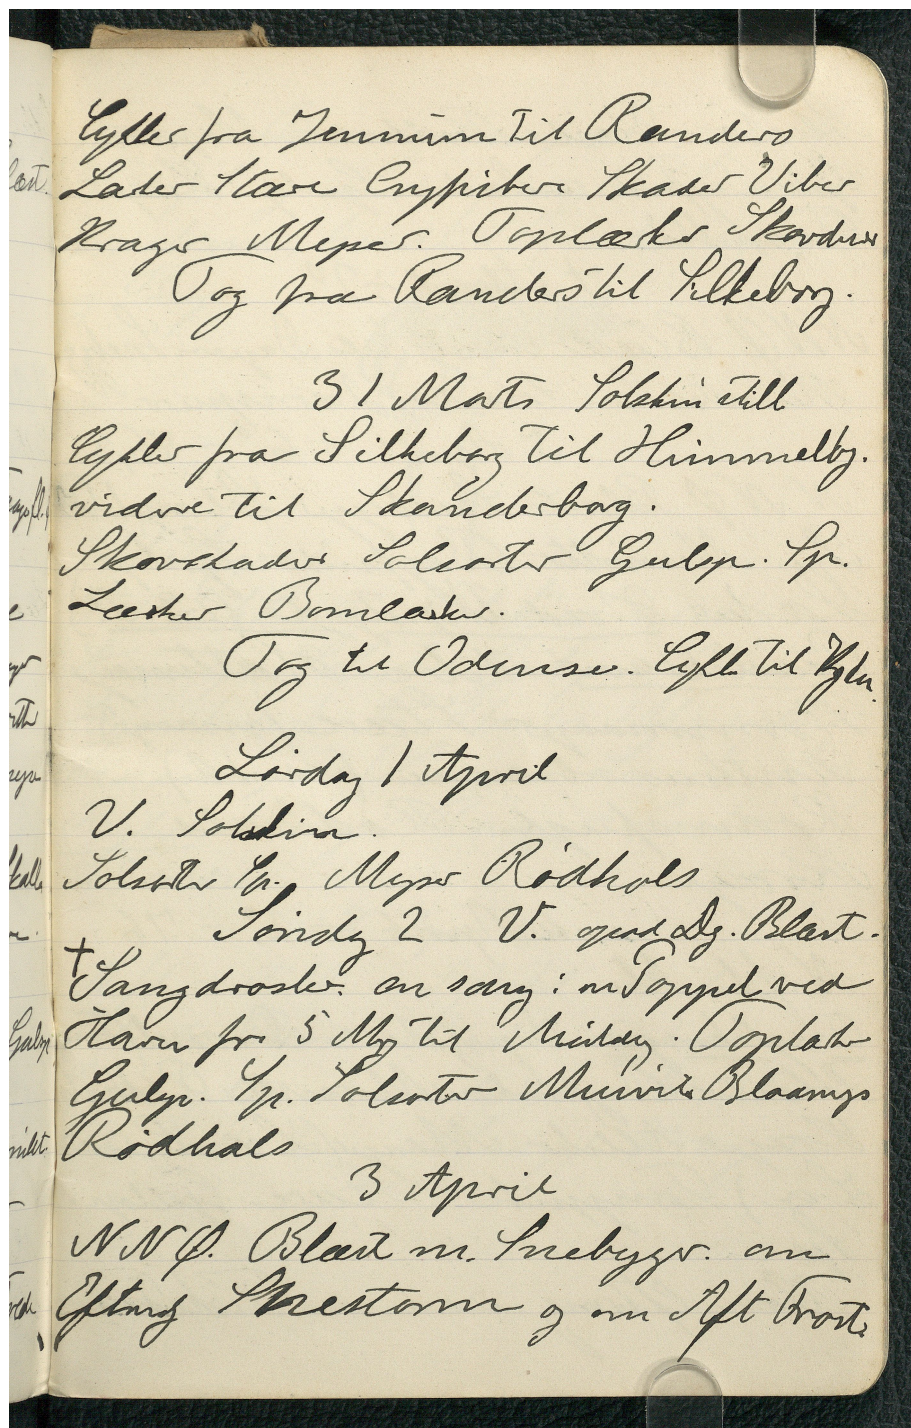 Cykler fra Jennum til Randers
Lærker Stære Skader Viber
Krager Mejser. Toplærker Skovduer
Tog fra Randers til Silkeborg.
31 Marts Solskin still
Cykler fra Silkeborg til Himmelbj.
videre til Skanderborg.
Skovskader Solsorter Gulsp. Sp.
Lærker Bomlærker.
Tog til Odense. Cykle til
Lørdag 1 April
V. Solskin.
Solsorter Sp. Mejser Rødhals
Søndag 2 V. Blæst.
+ Sangdrosler. en sang i en Poppel ved
Haven fra 5 Mg til Middag. Toplærker
Gulsp. Sp. Solsorter Musvit Blaamejs
Rødhals
3 April
NNØ. Blæst m. Snebyger. om
Eftmdg Snestorm og om Aft Frost.